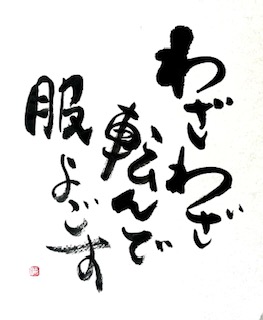 わざわざ
転んで
服よごす